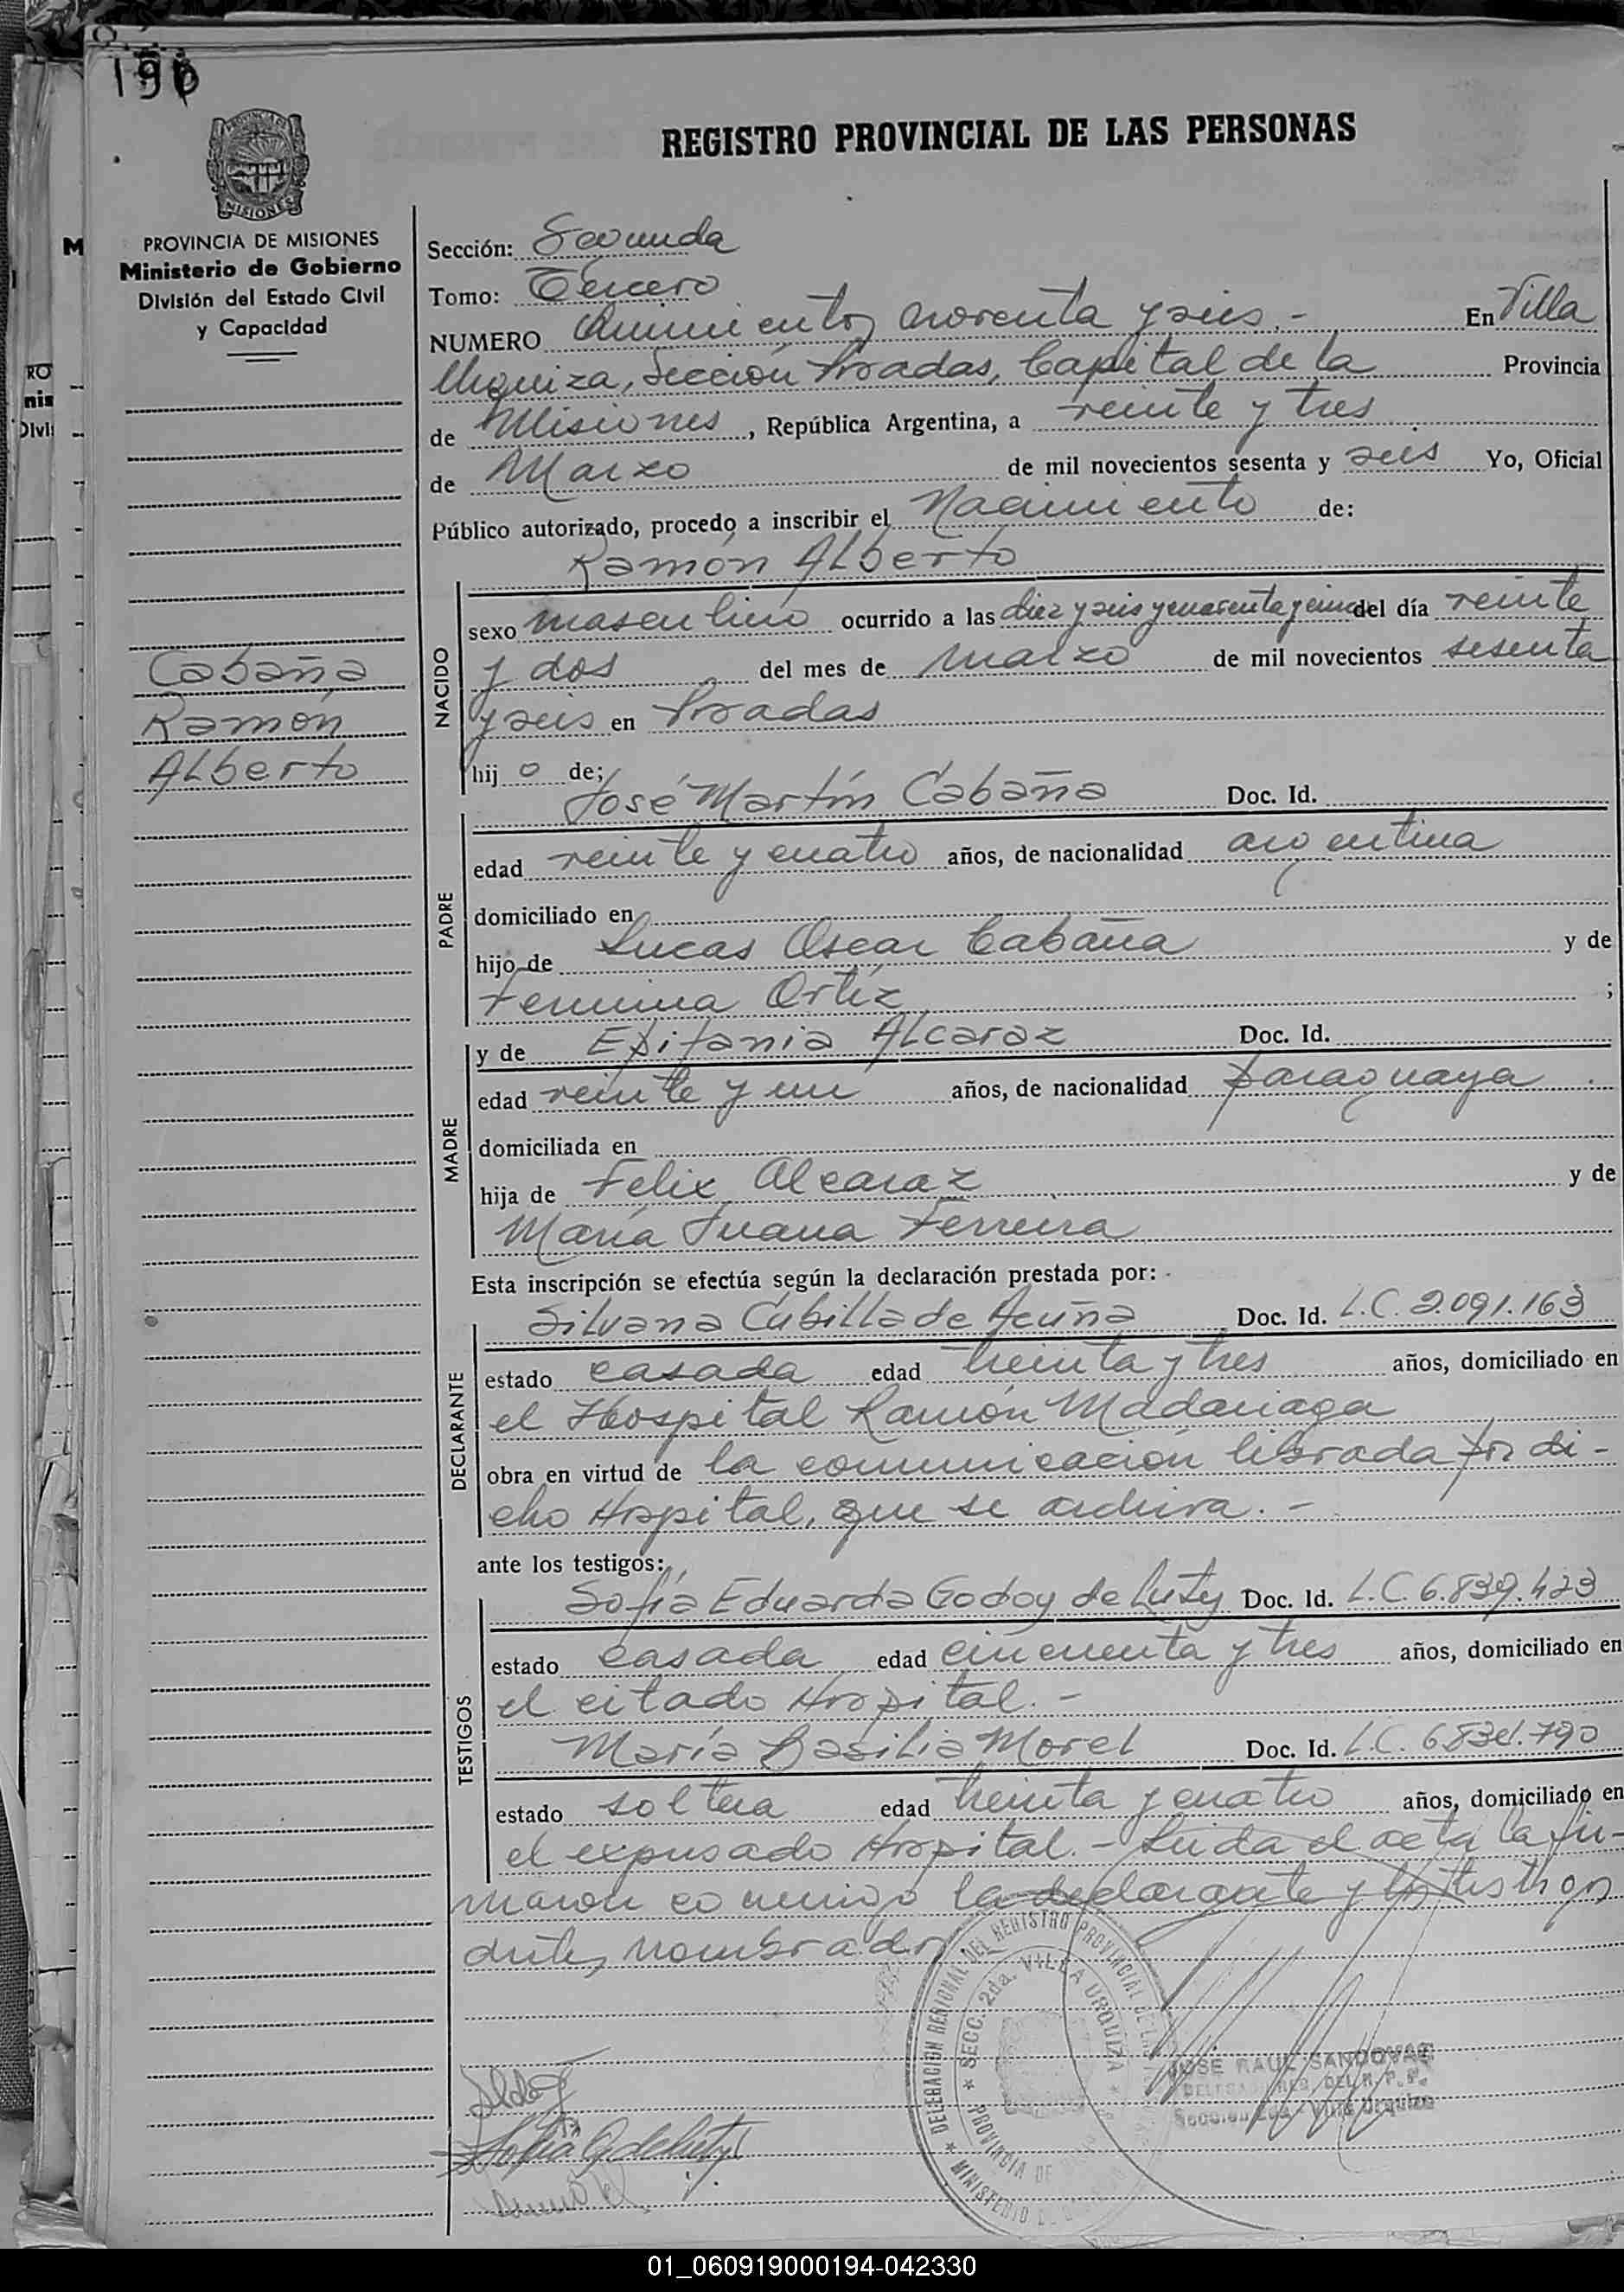 196
REGISTRO PROVINCIAL DE LAS PERSONAS
PROVINCIA DE MISIONES
Ministerio de Gobierno
División del Estado Civil
y Capacidad
Cabaña
Ramón
Alberto
Sección: Segunda
Tomo: Tercero
NUMERO Quinientos noventa y seis.- En Villa
Urquiza, Sección Posadas, Capital de la Provincia
de Misiones, República Argentina, a veinte y tres
de Marzo de mil novecientos sesenta y seis Yo, Oficial
Público autorizado, procedo a inscribir el Nacimiento de:
Ramón Alberto
NACIDO
sexo masculino ocurrido a las diez y seis y cuarenta y cinco del día veinte
y dos del mes de marzo de mil novecientos sesenta
y seis en Posadas
hijo de;
José Martín Cabaña Doc. Id.
PADRE
edad veinte y cuatro años, de nacionalidad argentina
domiciliado en
hijo de Lucas Oscar Cabaña y de
Fermina Ortíz ;
y de Epifania Alcaraz Doc. Id.
MADRE
edad veinte y un años, de nacionalidad paraguaya
domiciliada en
hija de Felix Alcaraz y de
María Juana Ferreira
Esta inscripción se efectúa según la declaración prestada por:
Silvana Cubilla de Acuña Doc. Id. L.C. 2.091.163
DECLARANTE
estado casada edad treinta y tres años, domiciliado en
el Hospital Ramón Madariaga
obra en virtud de la comunicación librada por di-
cho Hospital, que se archiva.-
ante los testigos:
Sofía Eduarda Godoy de Luty Doc. Id. L.C. 6.839.423
TESTIGOS
estado casada edad cincuenta y tres años, domiciliado en
el citado Hospital.-
María Basilia Morel Doc. Id. L.C.
estado soltera edad treinta y cuatro años, domiciliado en
el expresado Hospital.- Leida el acta la fir-
maron conmigo la declarante y los testigos
antes nombrados
DELEGACIÓN REGIONAL DEL REGISTRO PROVINCIAL DE LAS
SECC. 2da. VILLA URQUIZA
PROVINCIA DE
MINISTERIO
JOSE RAUL SANDOVAL
DELEGADO REG. DEL R. P. P.
Sección 2da. Villa Urquiza
Sofía G de Luty
01_060919000194-042330